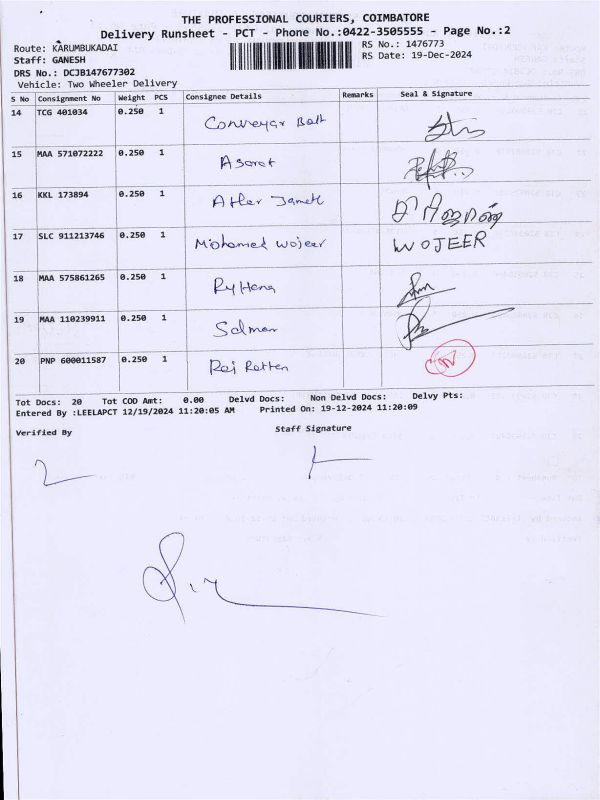 THE PROFESSIONAL COURIERS, COIMBATORE
Delivery Runsheet - PCT - Phone No.:0422-3505555 - Page No.:2
Route: KARUMBUKADAI
Staff: GANESH
DRS No.: DCJB147677302
Vehicle: Two Wheeler Delivery
RS No.: 1476773
RS Date: 19-Dec-2024
S No Consignment No Weight PCS Consignee Details Remarks Seal & Signature
14 TCG 401034 0.250 1 Conveyar Balt
15 MAA 571072222 0.250 1 Asarat
16 KKL 173894 0.250 1
17 SLC 911213746 0.250 1 Mohamed Wojeer WOJEER
18 MAA 575861265 0.250 1
19 MAA 110239911 0.250 1 Salman
20 PNP 600011587 0.250 1
Tot Docs: 20 Tot COD Amt: 0.00 Delvd Docs: Non Delvd Docs: Delvy Pts:
Entered By :LEELAPCT 12/19/2024 11:20:05 AM Printed On: 19-12-2024 11:20:09
Verified By Staff Signature